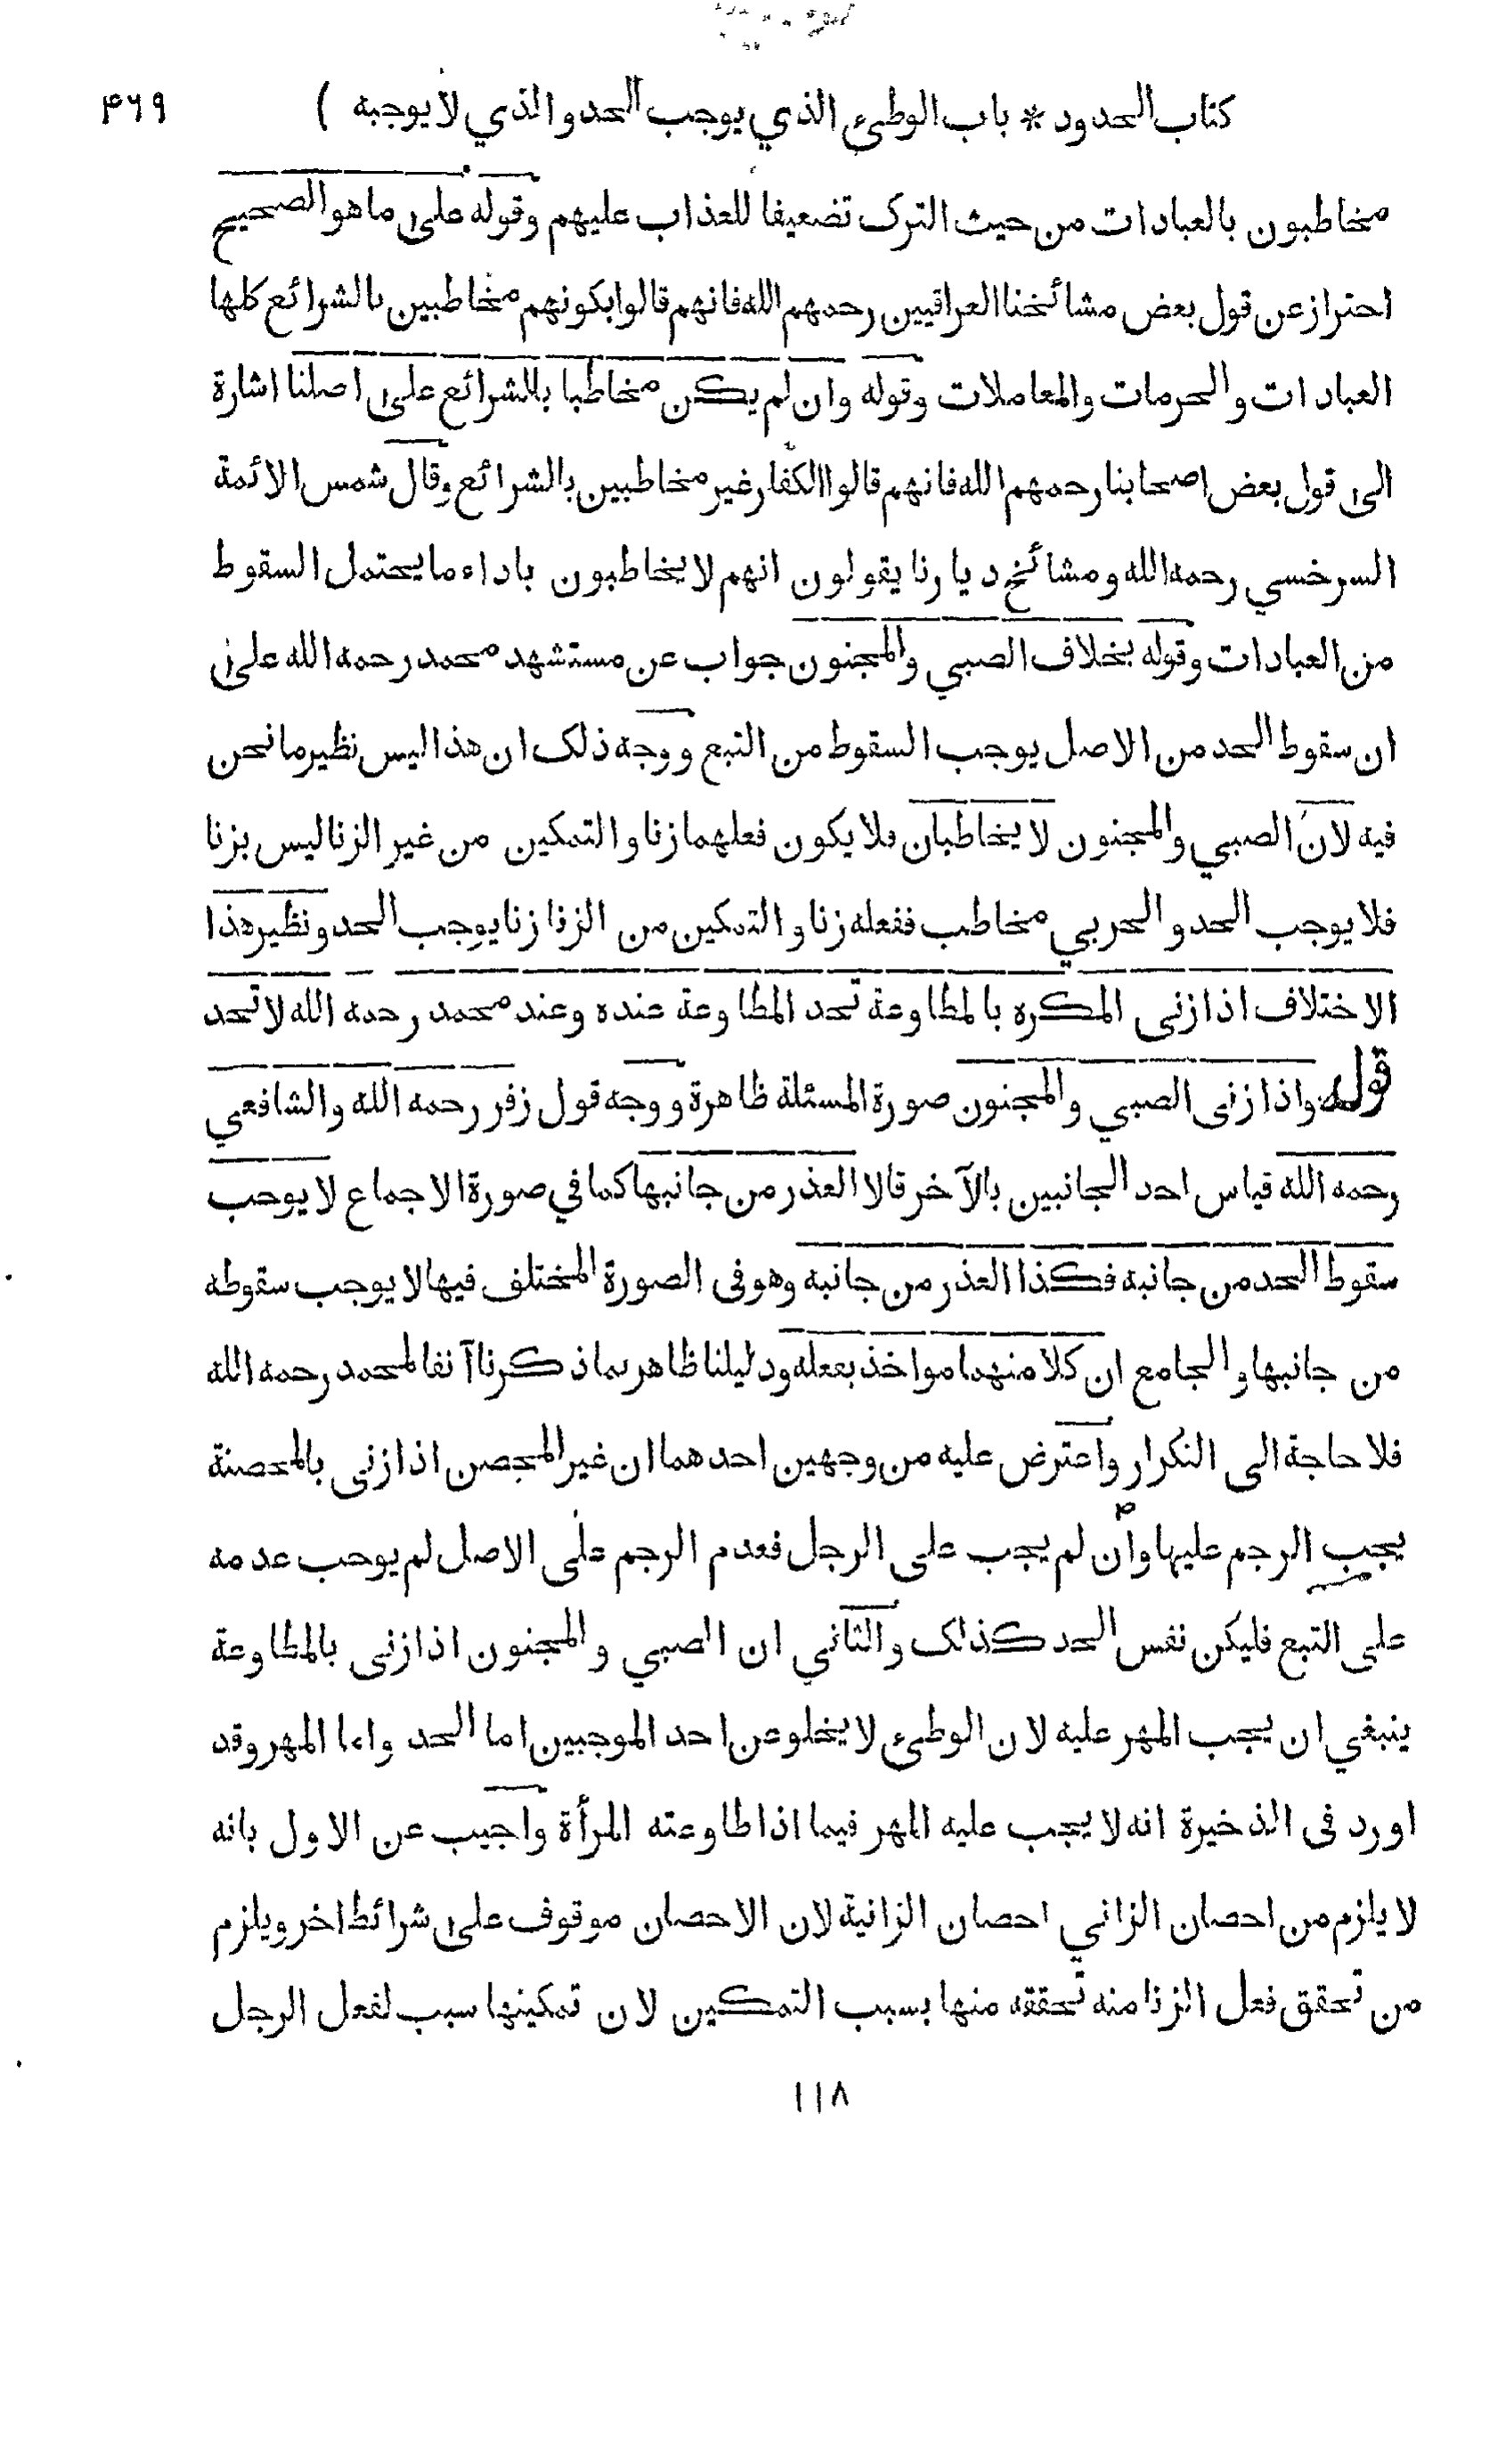 كتاب الحدود * باب الوطىء الذي يوجب الحد والذي لا يوجبه ) ۴۶۹
مخاطبون بالعبادات من حيث الترك تضعيفا للعذاب عليهم وقوله على ما هو الصحيح
احتراز عن قول بعض مشائخنا العراقيين رحمهم الله فانهم قالوا بكونهم مخاطبين بالشرائع كلها
العبادات والحرمات والمعاملات وقوله وان لم يكن مخاطبا بالشرائع على اصلنا اشارة
الى قول بعض اصحابنا رحمهم الله فانهم قالوا الكفار غير مخاطبين بالشرائع وقال شمس الائمة
السرخسي رحمه الله ومشائخ ديارنا يقولون انهم لا يخاطبون باداء ما يحتمل السقوط
من العبادات وقوله بخلاف الصبي والمجنون جواب عن مستشهد محمد رحمه الله على
ان سقوط الحد من الاصل يوجب السقوط من التبع ووجه ذلك ان هذا ليس نظير ما نحن
فيه لان الصبي والمجنون لا يخاطبان فلا يكون فعلهما زنا والتمكين من غير الزنا ليس بزنا
فلا يوجب الحد والحربي مخاطب ففعله زنا والتمكين من الزنا زنا يوجب الحد ونظير هذا
الاختلاف اذا زنى المكره بالمطاوعة تحد المطاوعة عنده وعند محمد رحمه الله لا تحد
قوله واذا زنى الصبي والمجنون صورة المسئلة ظاهرة ووجه قول زفر رحمه الله والشافعي
رحمه الله قياس احد الجانبين بالآخر قالا العذر من جانبها كما في صورة الاجماع لا يوجب
سقوط الحد من جانبه فكذا العذر من جانبه وهو فى الصورة المختلف فيها لا يوجب سقوطه
من جانبها والجامع ان كلا منهما مواخذ بفعله ودليلنا ظاهر بما ذكرنا آنفا لمحمد رحمه الله
فلا حاجة الى التكرار واعترض عليه من وجهين احدهما ان غير المحصن اذا زنى بالمحصنة
يجب الرجم عليها وان لم يجب على الرجل فعدم الرجم على الاصل لم يوجب عدمه
على التبع فليكن نفس الحد كذلك والثاني ان الصبي والمجنون اذا زنى بالمطاوعة
ينبغي ان يجب المهر عليه لان الوطىء لا يخلو عن احد الموجبين اما الحد واما المهر وقد
اورد فى الذخيرة انه لا يجب عليه المهر فيما اذا طاوعته المرأة واجيب عن الاول بانه
لا يلزم من احصان الزاني احصان الزانية لان الاحصان موقوف على شرائط اخر ويلزم
من تحقق فعل الزنا منه تحققه منها بسبب التمكين لان تمكينها سبب لفعل الرجل
١١٨